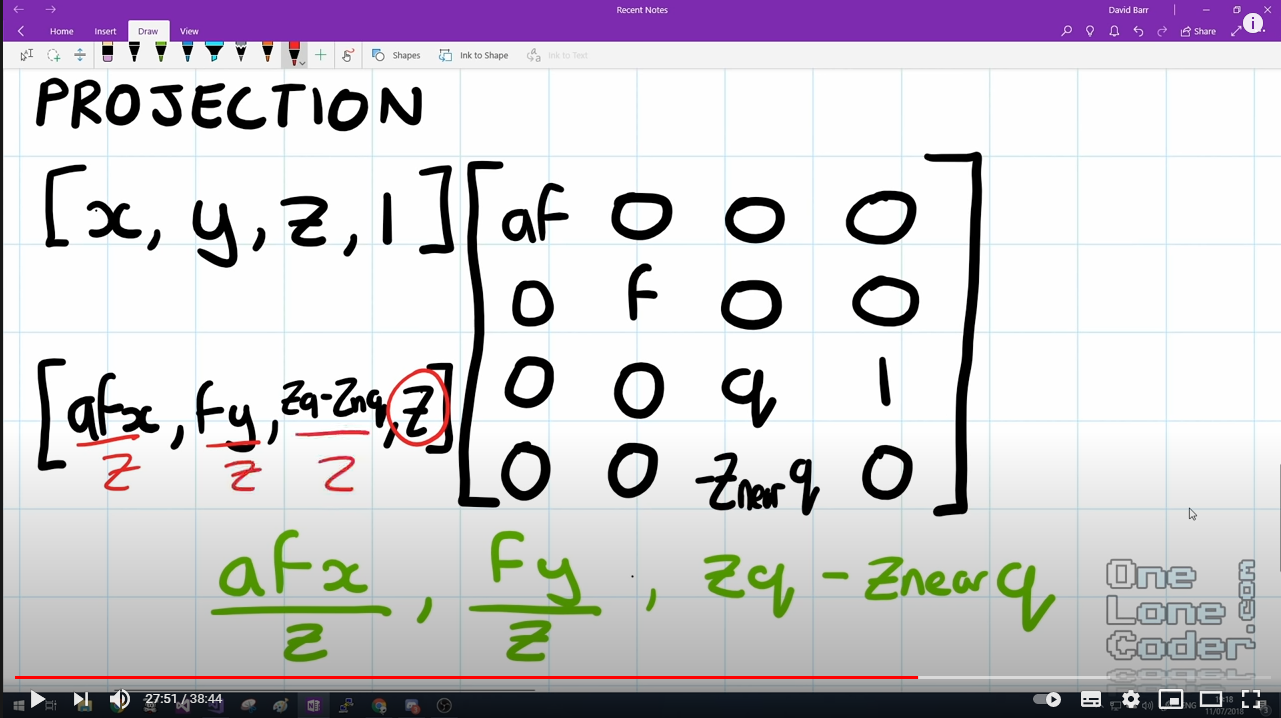 Recent Notes
David Barr
Home Insert Draw View
Share
Shapes Ink to Shape Ink to Text
PROJECTION
[x, y, z, 1] [af 0 0 0
0 f 0 0
0 0 q 1
[afx/z, fy/z, zq-znq/z, z]
0 0 -Znear q 0]
afx/z, fy/z, zq - znear q
One
Lone
Coder
.com
27:51 / 38:44
ENG
11/07/2018